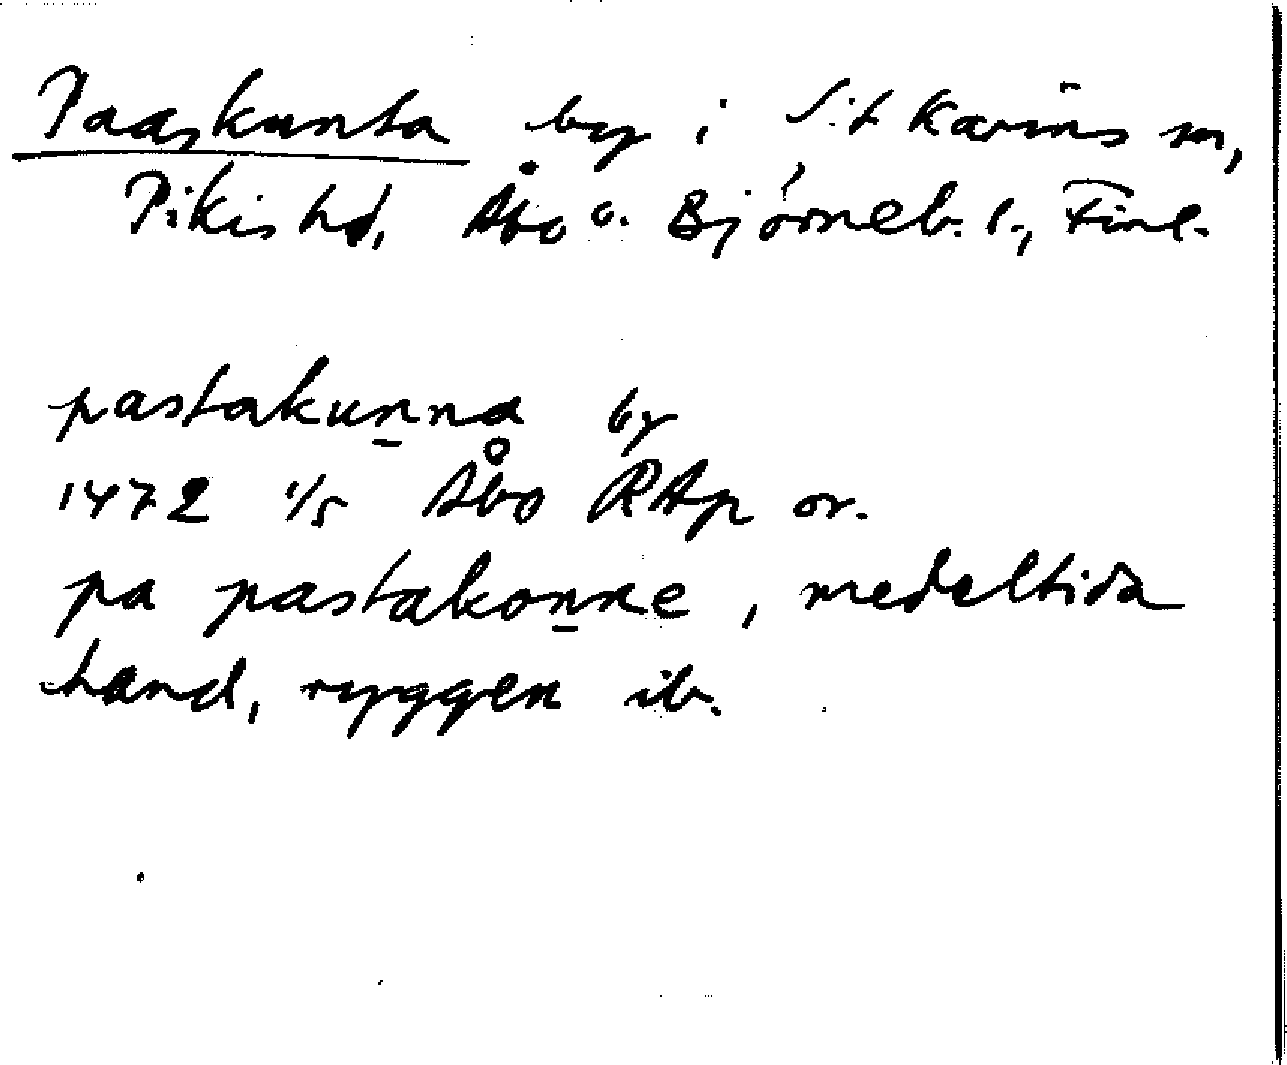 Paaskunta by i S:t Karins sn,
Pikis hd, Åbo o. Björneb. l., Finl.
pastakunna by
1472 1/5 Åbo RAp or.
pa pastakonne, medeltida
hand, ryggen ib.